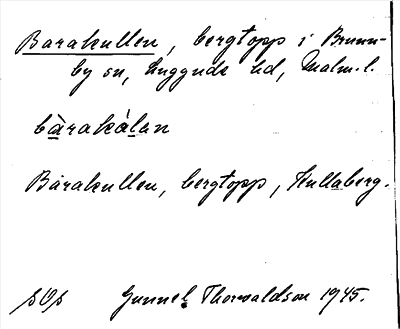 Barakullen, bergtopp i Brunn-
by sn, Luggude hd, Malm. l.
bàrakálan
Bårakullen, bergtopp, Kullaberg.
sOs Gunnel Thorvaldson 1945.